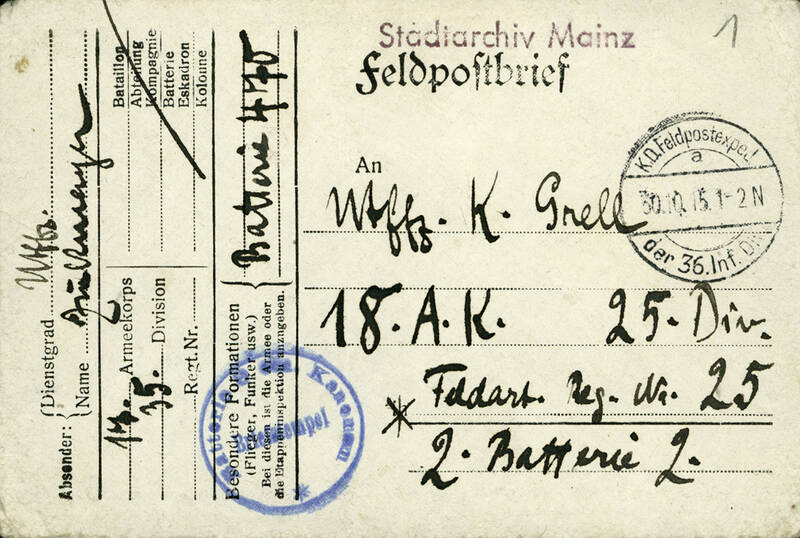 Stadtarchiv Mainz
1
Feldpostbrief
K.D. Feldpostexped.
a
30.10.15. 1-2 N
der 36. Inf. Div.
An
Utffz. K. Grell
18. A. K. 25. Div.
Feldart. Reg. Nr. 25
2. Batterie 2.
Absender:
Dienstgrad Utffz.
Name
Armeekorps
35. Division
Regt. Nr.
Bataillon
Abteilung
Kompagnie
Batterie
Eskadron
Kolonne
Besondere Formationen
(Flieger, Funker usw.)
Bei diesen ist die Armee oder
die Etappeninspektion anzugeben.
Batterie 470
Kanonen